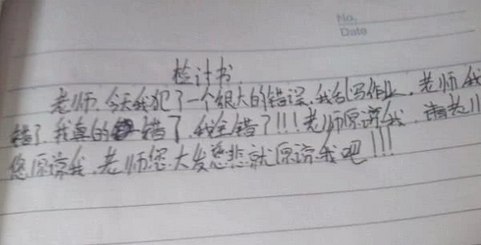 No.
Date
检讨书
老师,今天我犯了一个很大的错误,我忘写作业,老师我
错了,我真的错了,我全错了!!!老师原谅我,请老
您原谅我,老师您大发慈悲就原谅我吧!!!